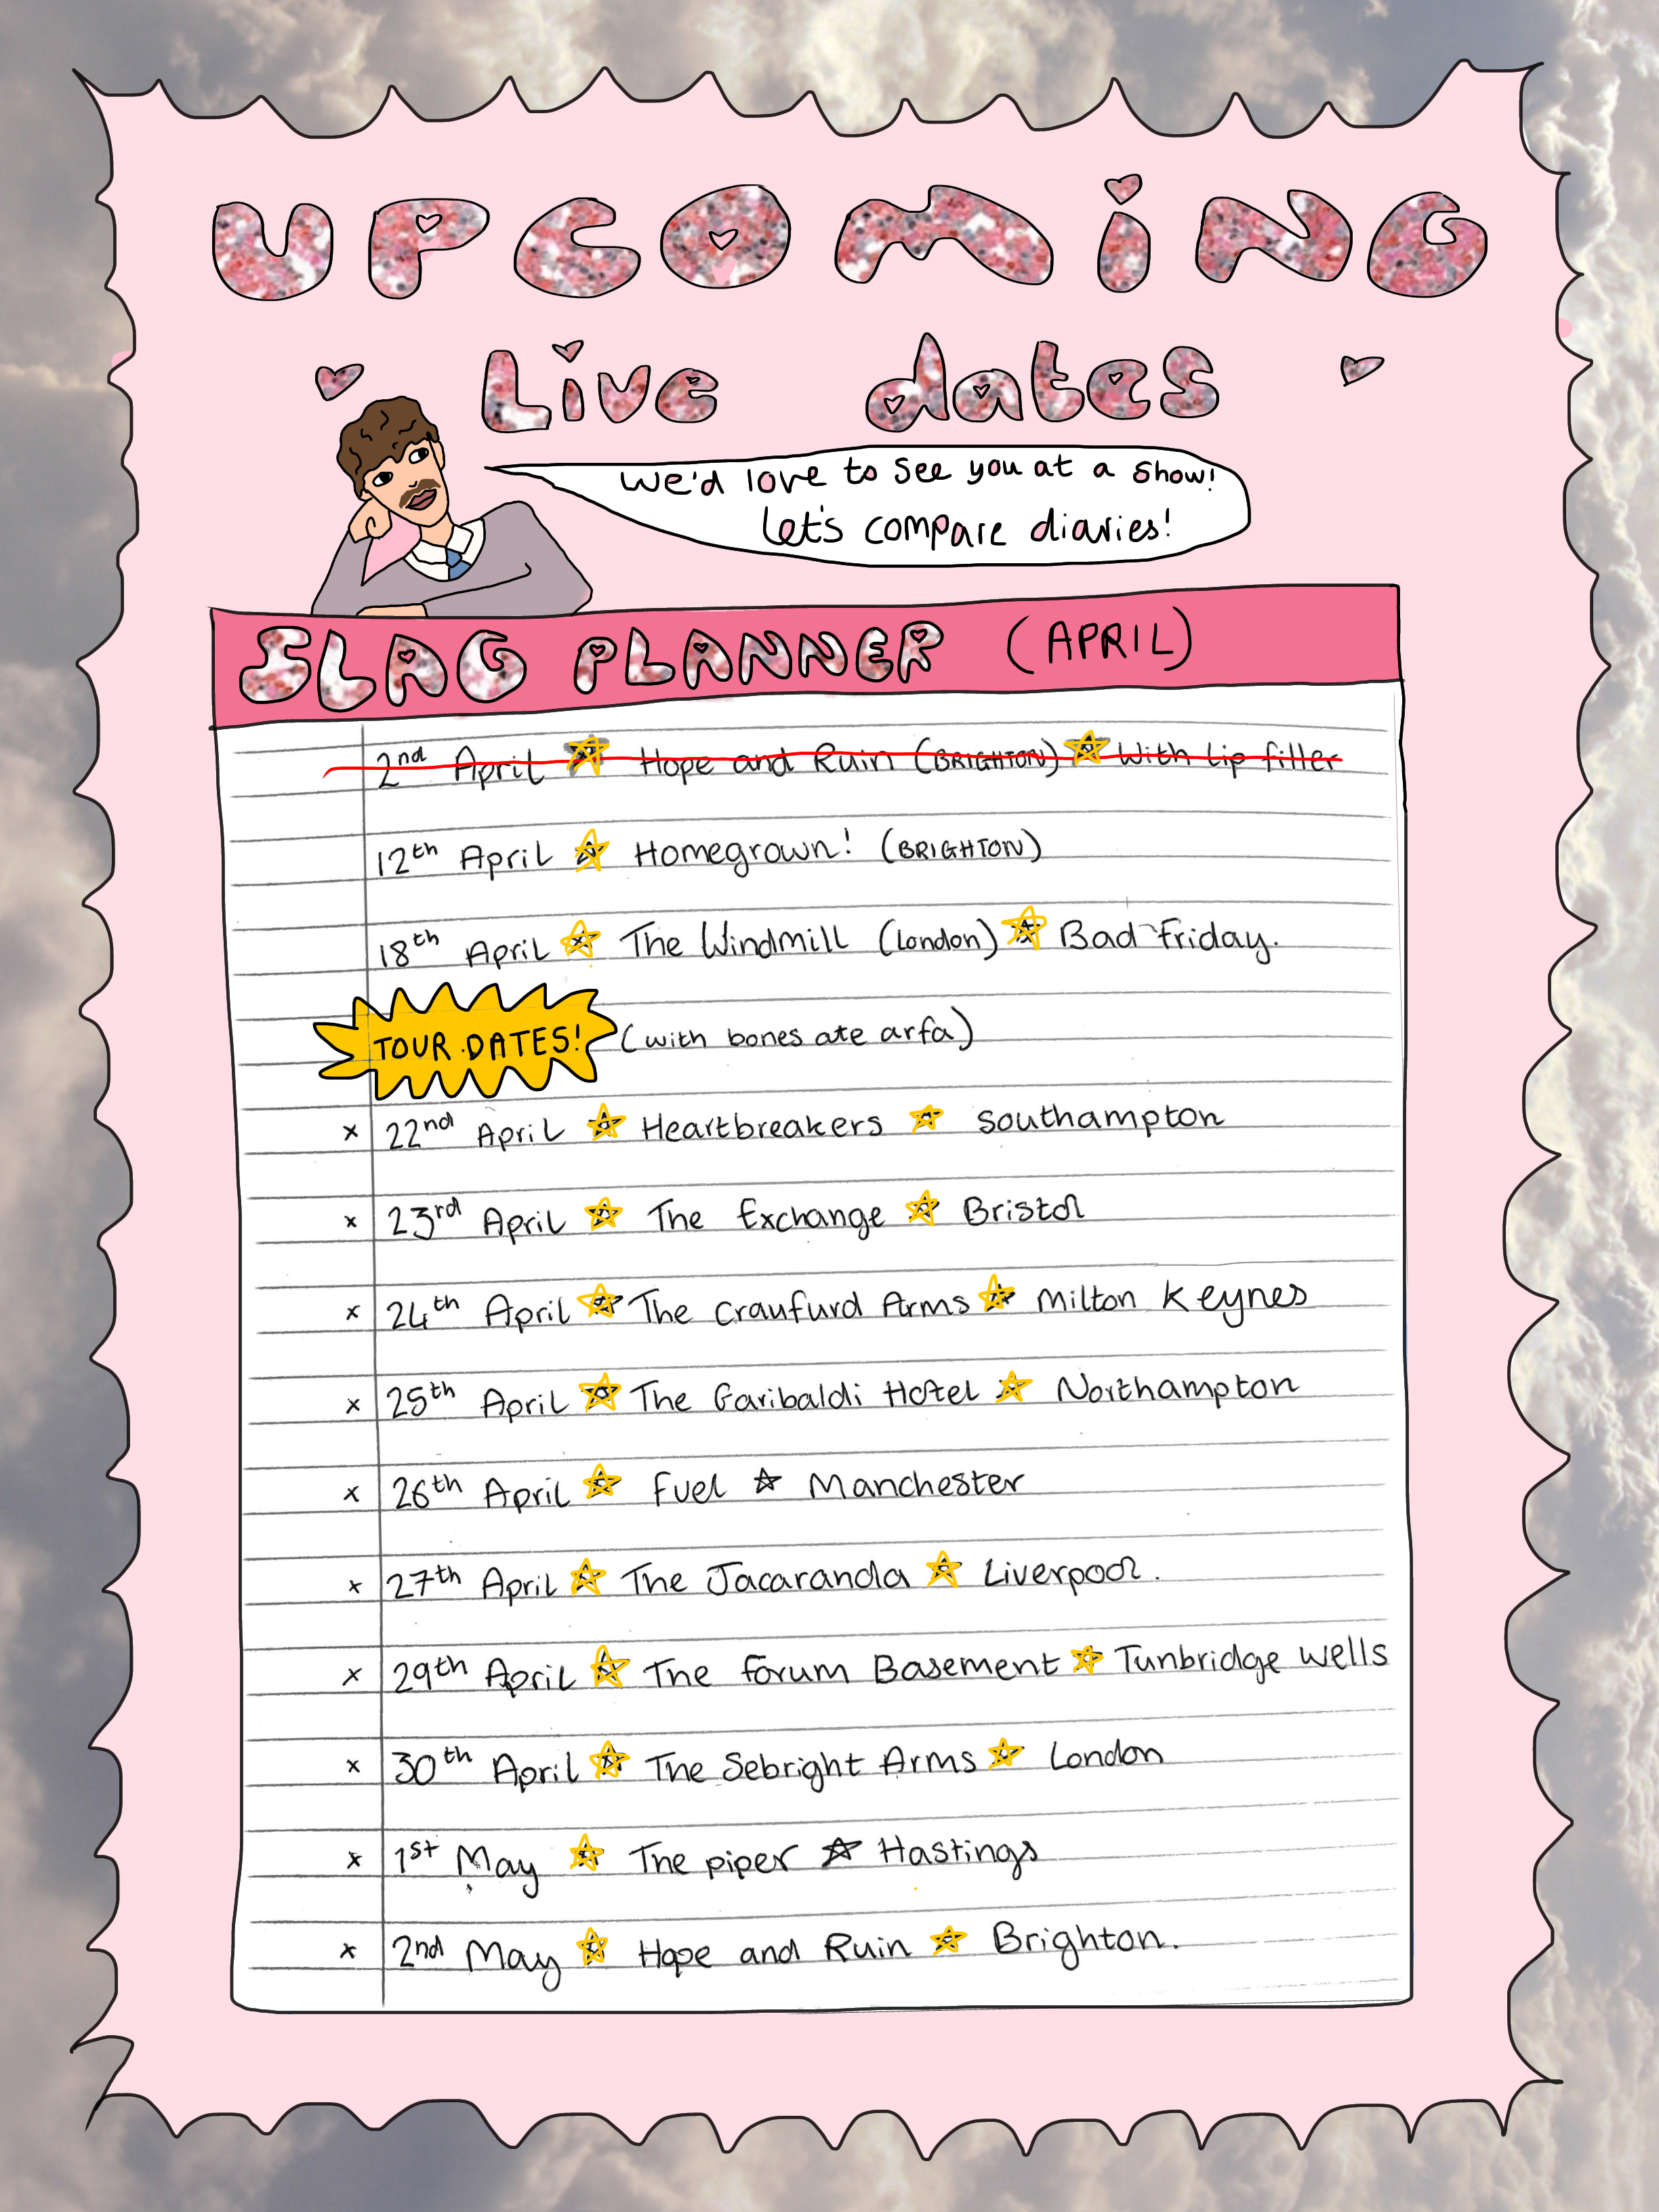 UPCOMING
Live dates
We'd love to see you at a show!
Let's compare diaries!
SLAG PLANNER (APRIL)
2nd April ☆ Hope and Ruin (BRIGHTON) ☆ With Lip filler
12th April ☆ Homegrown! (BRIGHTON)
18th April ☆ The Windmill (London) ☆ Bad Friday.
TOUR DATES! (with bones ate arfa)
x 22nd April ☆ Heartbreakers ☆ Southampton
x 23rd April ☆ The Exchange ☆ Bristol
x 24th April ☆ The Craufurd Arms ☆ Milton Keynes
x 25th April ☆ The Garibaldi Hotel ☆ Northampton
x 26th April ☆ Fuel ☆ Manchester
x 27th April ☆ The Jacaranda ☆ Liverpool.
x 29th April ☆ The forum Basement ☆ Tunbridge wells
x 30th April ☆ The Sebright Arms ☆ London
x 1st May ☆ The piper ☆ Hastings
x 2nd May ☆ Hope and Ruin ☆ Brighton.